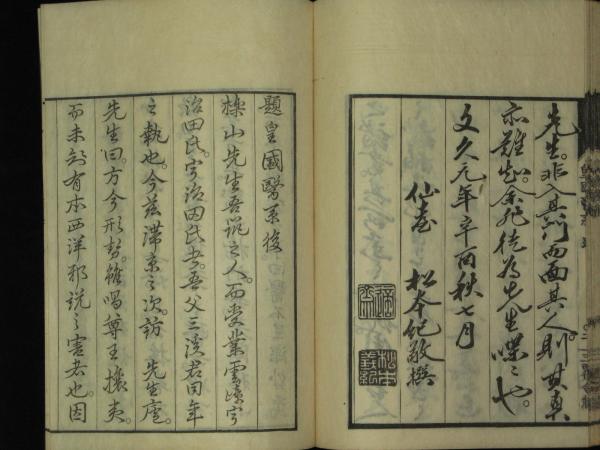 先生。非入其門而面其人。則其真
亦難知。余非徒為先生喋〻也。
文久元年辛酉秋七月
仙臺 松本
撰
題皇國醫系後
山先生吾
之人。而受業雲
宇
治田氏。宇治田氏
吾父三溪君同年
之執也。今茲滯京之次。訪 先生廬。
先生曰。方今形勢。雖唱尊王攘夷。
而未
有本西洋邪説之害者也。因